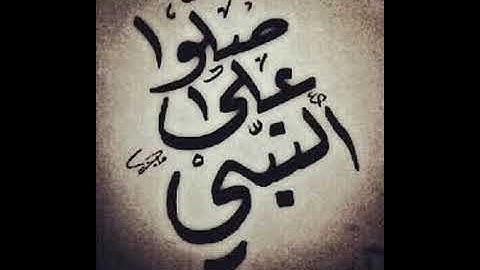 صَلّوا
عَلى
النّبي